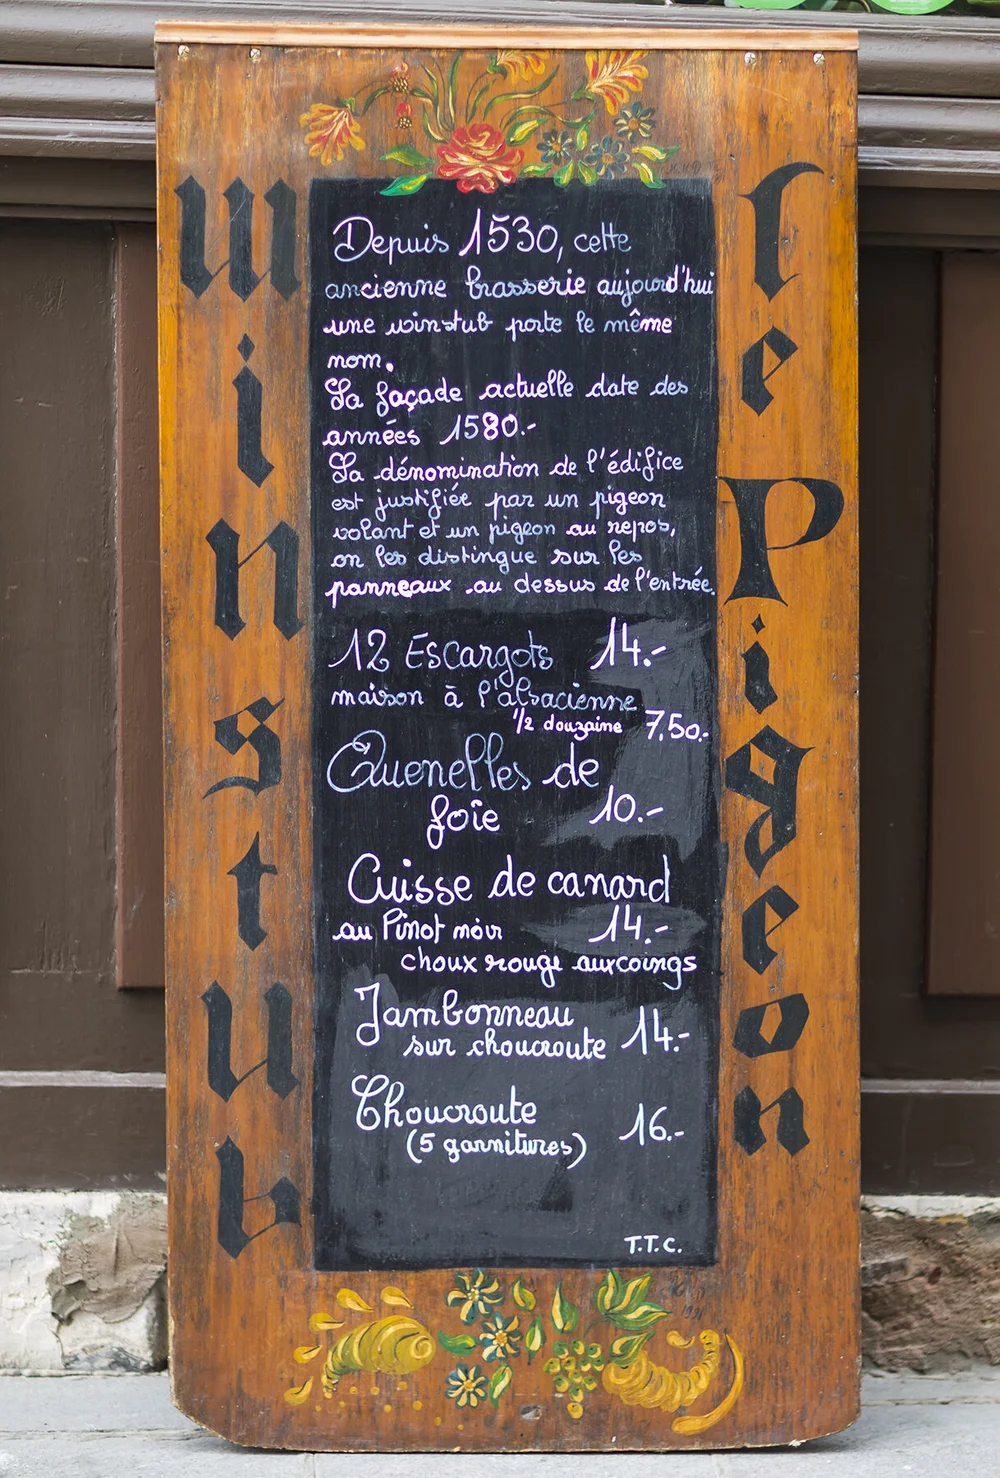 Winstub
Le Pigeon
Depuis 1530, cette
ancienne brasserie aujourd'hui
une winstub porte le même
nom.
La façade actuelle date des
années 1580.-
La dénomination de l'édifice
est justifiée par un pigeon
volant et un pigeon au repos,
on les distingue sur les
panneaux au dessus de l'entrée.
12 Escargots 14.-
maison à l'alsacienne
1/2 douzaine 7,50.-
Quenelles de
foie 10.-
Cuisse de canard
au Pinot noir 14.-
choux rouge aux coings
Jambonneau
sur choucroute 14.-
Choucroute
(5 garnitures) 16.-
T.T.C.
1991